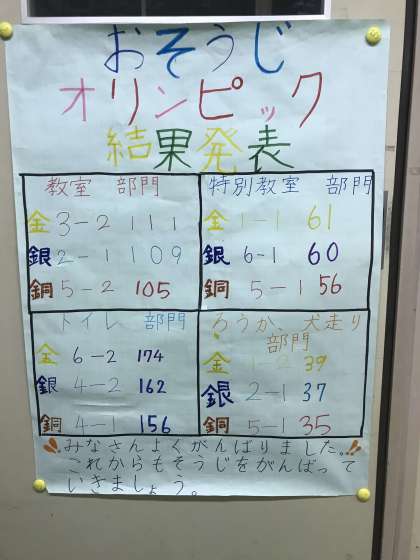 おそうじ
オリンピック
結果発表
教室 部門
金 3-2 111
銀 2-1 109
銅 5-2 105
特別教室 部門
金 1-1 61
銀 6-1 60
銅 5-1 56
トイレ 部門
金 6-2 174
銀 4-2 162
銅 4-1 156
ろうか、犬走り
部門
金 1-2 39
銀 2-1 37
銅 5-1 35
みなさんよくがんばりました。
これからもそうじをがんばって
いきましょう。